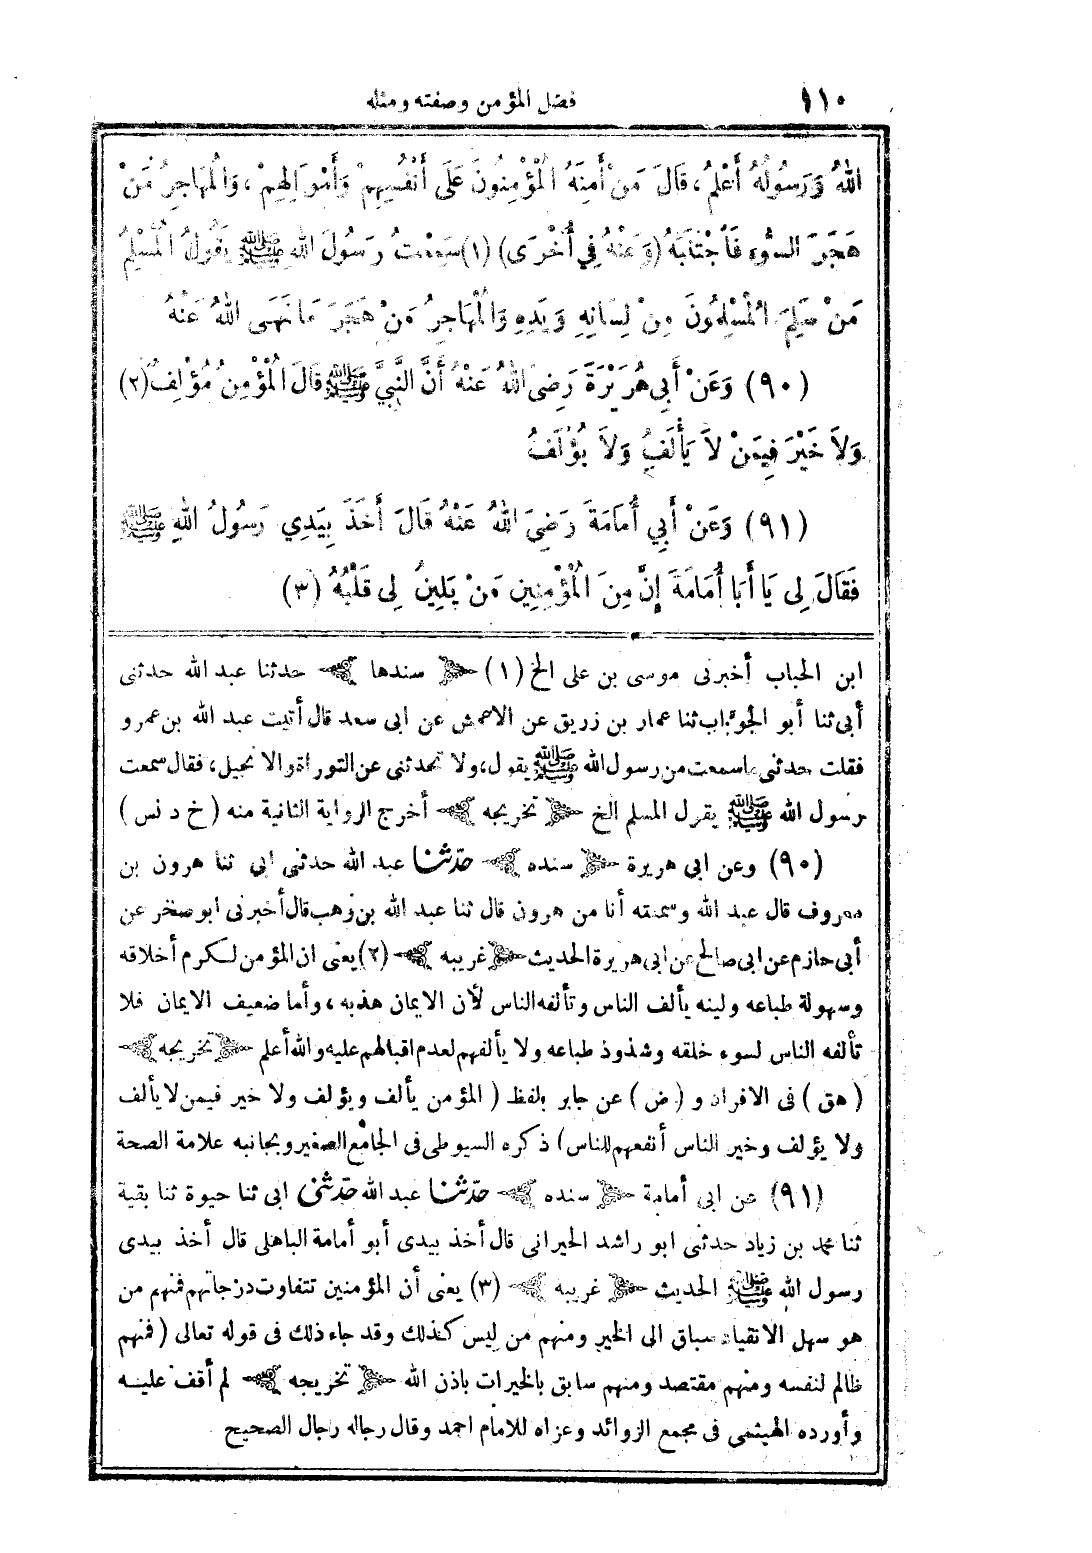 ١١٠ فضل المؤمن وصفته ومثله
اللهُ وَرَسُولُهُ أَعْلَمُ، قَالَ مَنْ أَمِنَهُ الْمُؤْمِنُونَ عَلَى أَنْفُسِهِمْ وَأَمْوَالِهِمْ، وَالْمُهَاجِرُ مَنْ
هَجَرَ السُّوءَ فَاجْتَنَبَهُ (وَعَنْهُ فِي أُخْرَى) (١) سَمِعْتُ رَسُولَ اللهِ ﷺ يَقُولُ الْمُسْلِمُ
مَنْ سَلِمَ الْمُسْلِمُونَ مِنْ لِسَانِهِ وَيَدِهِ وَالْمُهَاجِرُ مَنْ هَجَرَ مَا نَهَى اللهُ عَنْهُ
(٩٠) وَعَنْ أَبِي هُرَيْرَةَ رَضِيَ اللهُ عَنْهُ أَنَّ النَّبِيَّ ﷺ قَالَ الْمُؤْمِنُ مُؤْلِفٌ (٢)
وَلاَ خَيْرَ فِيمَنْ لاَ يَأْلَفُ وَلاَ يُؤْلَفُ
(٩١) وَعَنْ أَبِي أُمَامَةَ رَضِيَ اللهُ عَنْهُ قَالَ أَخَذَ بِيَدِي رَسُولُ اللهِ ﷺ
فَقَالَ لِي يَا أَبَا أُمَامَةَ إِنَّ مِنَ الْمُؤْمِنِينَ مَنْ يَلِينُ لِي قَلْبُهُ (٣)
ابن الحباب أخبرنى موسى بن على الخ (١) ﴿ سندها ﴾ حدثنا عبد الله حدثنى
أبى ثنا أبو الجوّاب ثنا عمار بن زريق عن الاعمش عن ابى سعد قال أتيت عبد الله بن عمرو
فقلت حدثنى ماسمعت من رسول الله ﷺ يقول، ولا تحدثنى عن التوراة والانجيل، فقال سمعت
رسول الله ﷺ يقول المسلم الخ ﴿ تخريجه ﴾ أخرج الرواية الثانية منه (خ د نس)
(٩٠) وعن ابى هريرة ﴿ سنده ﴾ حدّثنا عبد الله حدثنى ابى ثنا هرون بن
معروف قال عبد الله وسمعته أنا من هرون قال ثنا عبد الله بن وهب قال أخبرنى ابو صخر عن
أبى حازم عن ابى صالح عن ابى هريرة الحديث ﴿ غريبه ﴾ (٢) يعنى ان المؤمن لكرم أخلاقه
وسهولة طباعه ولينه يألف الناس وتألفه الناس لأن الايمان هذبه، وأما ضعيف الايمان فلا
تألفه الناس لسوء خلقه وشذوذ طباعه ولا يألفهم لعدم اقبالهم عليه والله أعلم ﴿ تخريجه ﴾
(هق) فى الافراد و (ض) عن جابر بلفظ (المؤمن يألف ويؤلف ولا خير فيمن لا يألف
ولا يؤلف وخير الناس أنفعهم للناس) ذكره السيوطى فى الجامع الصغير وبجانبه علامة الصحة
(٩١) عن ابى أمامة ﴿ سنده ﴾ حدّثنا عبد الله حدّثنى ابى ثنا حيوة ثنا بقية
ثنا محمد بن زياد حدثنى ابو راشد الحبرانى قال أخذ بيدى أبو أمامة الباهلى قال أخذ بيدى
رسول الله ﷺ الحديث ﴿ غريبه ﴾ (٣) يعنى أن المؤمنين تتفاوت درجاتهم فمنهم من
هو سهل الانقياد سباق الى الخير ومنهم من ليس كذلك وقد جاء ذلك فى قوله تعالى (فمنهم
ظالم لنفسه ومنهم مقتصد ومنهم سابق بالخيرات باذن الله ﴿ تخريجه ﴾ لم أقف عليه
وأورده الهيثمى فى مجمع الزوائد وعزاه للامام احمد وقال رجاله رجال الصحيح